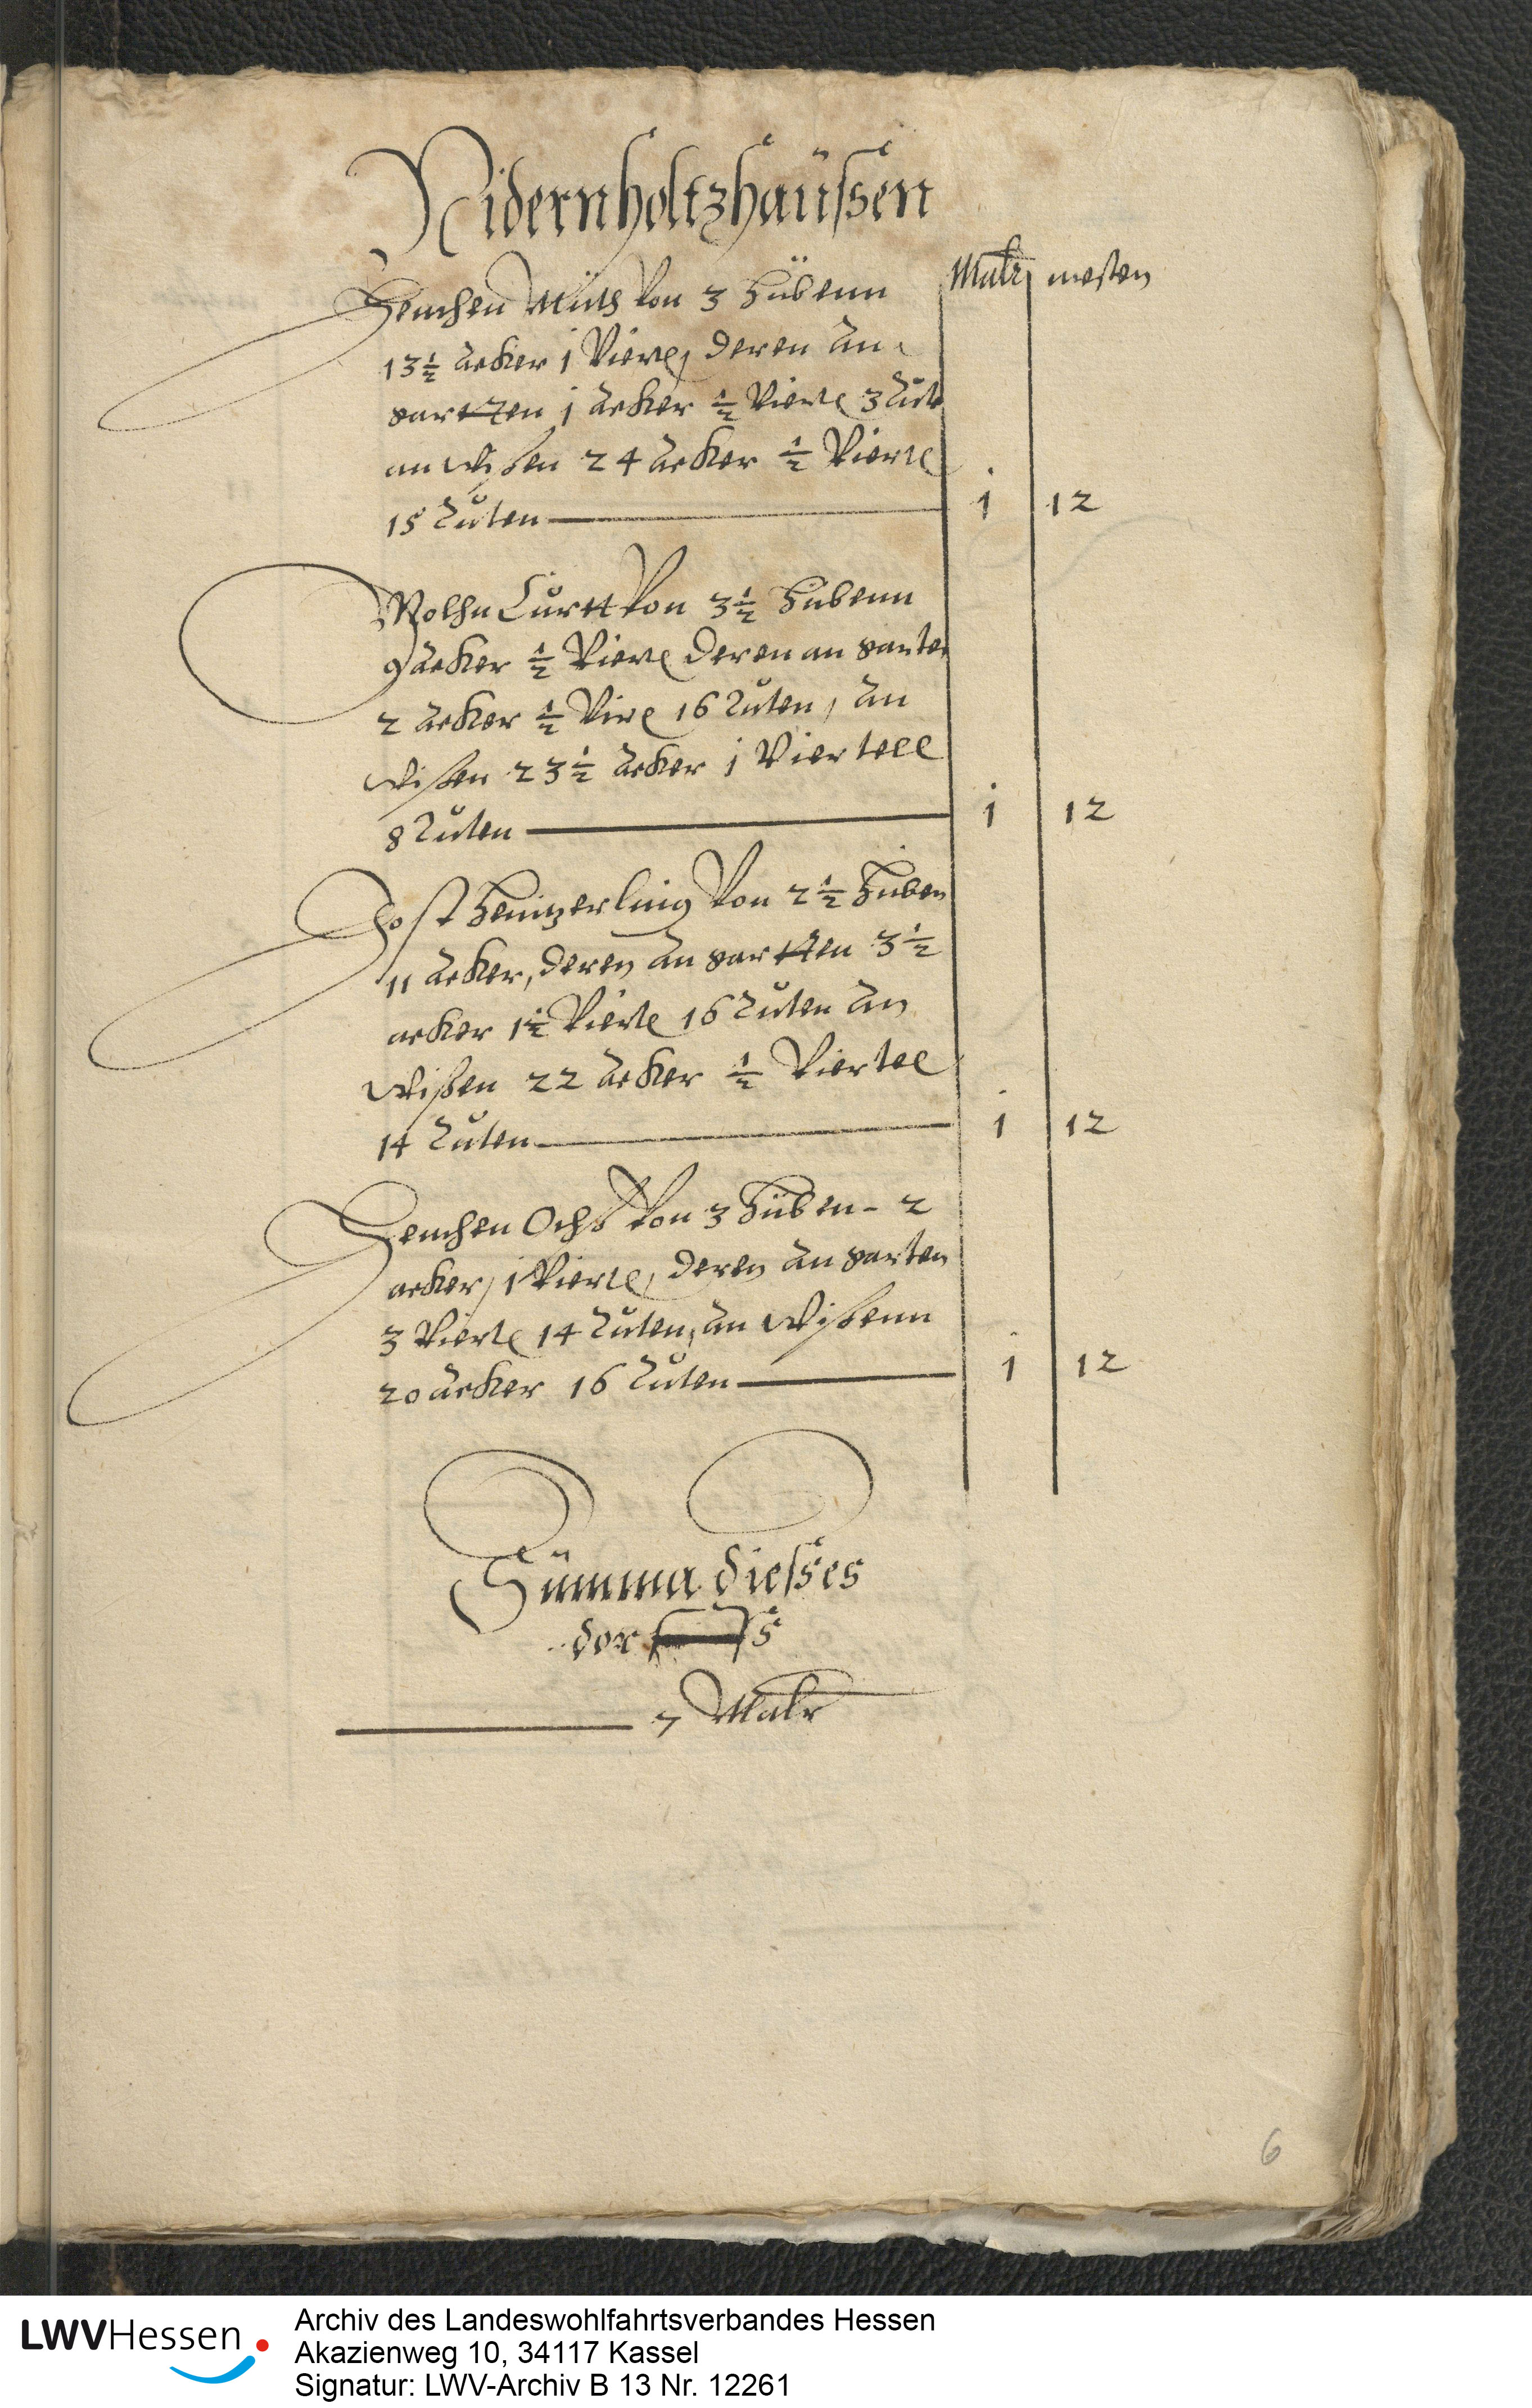 Nidernholtzhaüssen
Malr mesten
Henchen Müth Von 3 Hübenn
13½ Acker 1 Viertl, deren An
gartten 1 Acker ½ Viertl 3 Rut
an Wisen 24 Acker ½ Viertl
15 Ruten 1 12
Curtt Von 3½ Hubenn
9 Acker ½ Viertl deren an garten
2 Acker ½ Virtl 16 Ruten, An
Wisen 23½ Acker 1 Viertell
8 Ruten 1 12
Jost Hentzerling Von 2½ Huben
11 Acker, deren An gartten 3½
acker 1½ Viertl 16 Ruten An
Wisen 22 Acker ½ Viertel
14 Ruten 1 12
Henchen Ochs Von 3 Hüben 2
acker, 1 Viertl, deren An garten
3 Viertl 14 Ruten, An Wisenn
20 Acker 16 Ruten 1 12
Summa diesses
dorffs
7 Malr
6
LWVHessen
Archiv des Landeswohlfahrtsverbandes Hessen
Akazienweg 10, 34117 Kassel
Signatur: LWV-Archiv B 13 Nr. 12261